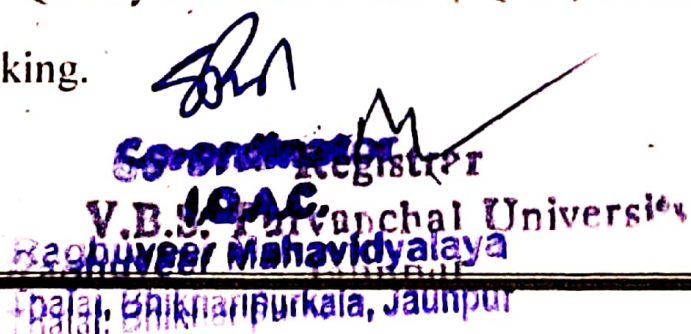 king.
Co-ordinator
Registrar
I.Q.A.C.
V.B.S. Purvanchal University
Raghuveer Mahavidyalaya
Thalai, Bhikharipurkala, Jaunpur